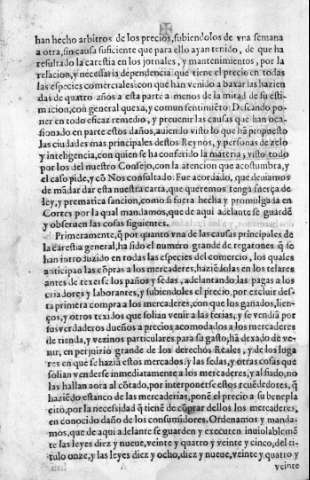 han hecho arbitros de los precios, subiendolos de vna semana
a otra, sin causa suficiente que para ello ayan tenido, de que ha
resultado la carestia en los jornales, y mantenimientos, por la
relacion, y necessaria dependencia que tiene el precio en todas
las especies comerciales: con que han venido a baxar las haziendas
das de quatro años a esta parte a menos de la mitad de su esti-
macion, con general quexa, y comun sentimiẽto: Deseando po-
ner en todo eficaz remedio, y preuenir las causas que han oca-
sionado en parte estos daños, auiendo visto lo que hã propuesto
las ciudades mas principales destos Reynos, y personas de zelo
y inteligencia, con quien se ha conferido la materia, visto todo
por los del nuestro Consejo, con la atencion que acostumbra, y
el caso pide, y cõ Nos consultado. Fue acordado, que deuiamos
de mãdar dar esta nuestra carta, que queremos tenga fuerça de
ley, y prematica sancion, como si fuera hecha y promulgada en
Cortes por la qual mandamos, que de aqui adelante se guardẽ
y obseruen las cosas siguientes.
Primeramente, q̃ por quanto vna de las causas principales de
la carestia general, ha sido el numero grande de regatones q̃ se
han introduzido en todas las especies del comercio, los quales
anticipan las cõpras a los mercaderes, haziẽdolas en los telares
antes de texerse los paños y sedas, adelantando las pagas a los
criadores y laborantes, y subiendoles el precio por excluir des-
ta primera compra a los mercaderes, con que los ganados, lien-
ços, y otros tratos que solian venir a las ferias, y se vendiã por
sus verdaderos dueños a precios acomodados a los mercaderes
de tienda, y vezinos particulares para su gasto, hã dexado de ve-
nir, en perjuizio grande de los derechos Reales, y de los luga
res en que se haziã estos mercados: y las sedas, y otras cosas que
solian venderse inmediatamente a los mercaderes, y al fiado, no
las hallan aora al cõtado, por interponerse estos reuẽdedores, q̃
haziẽdo estanco de las mercaderias, ponẽ el precio a su benepla
cito, por la necessidad q̃ tienẽ de cõprar dellos los mercaderes,
en conocido daño de los consumidores. Ordenamos y manda-
mos, que de aqui adelante se guarden y executen inuiolablemẽ
te las leyes diez y nueue, veinte y quatro y veinte y cinco, del ti-
tulo onze, y las leyes diez y ocho, diez y nueue, veinte y quatro y
veinte